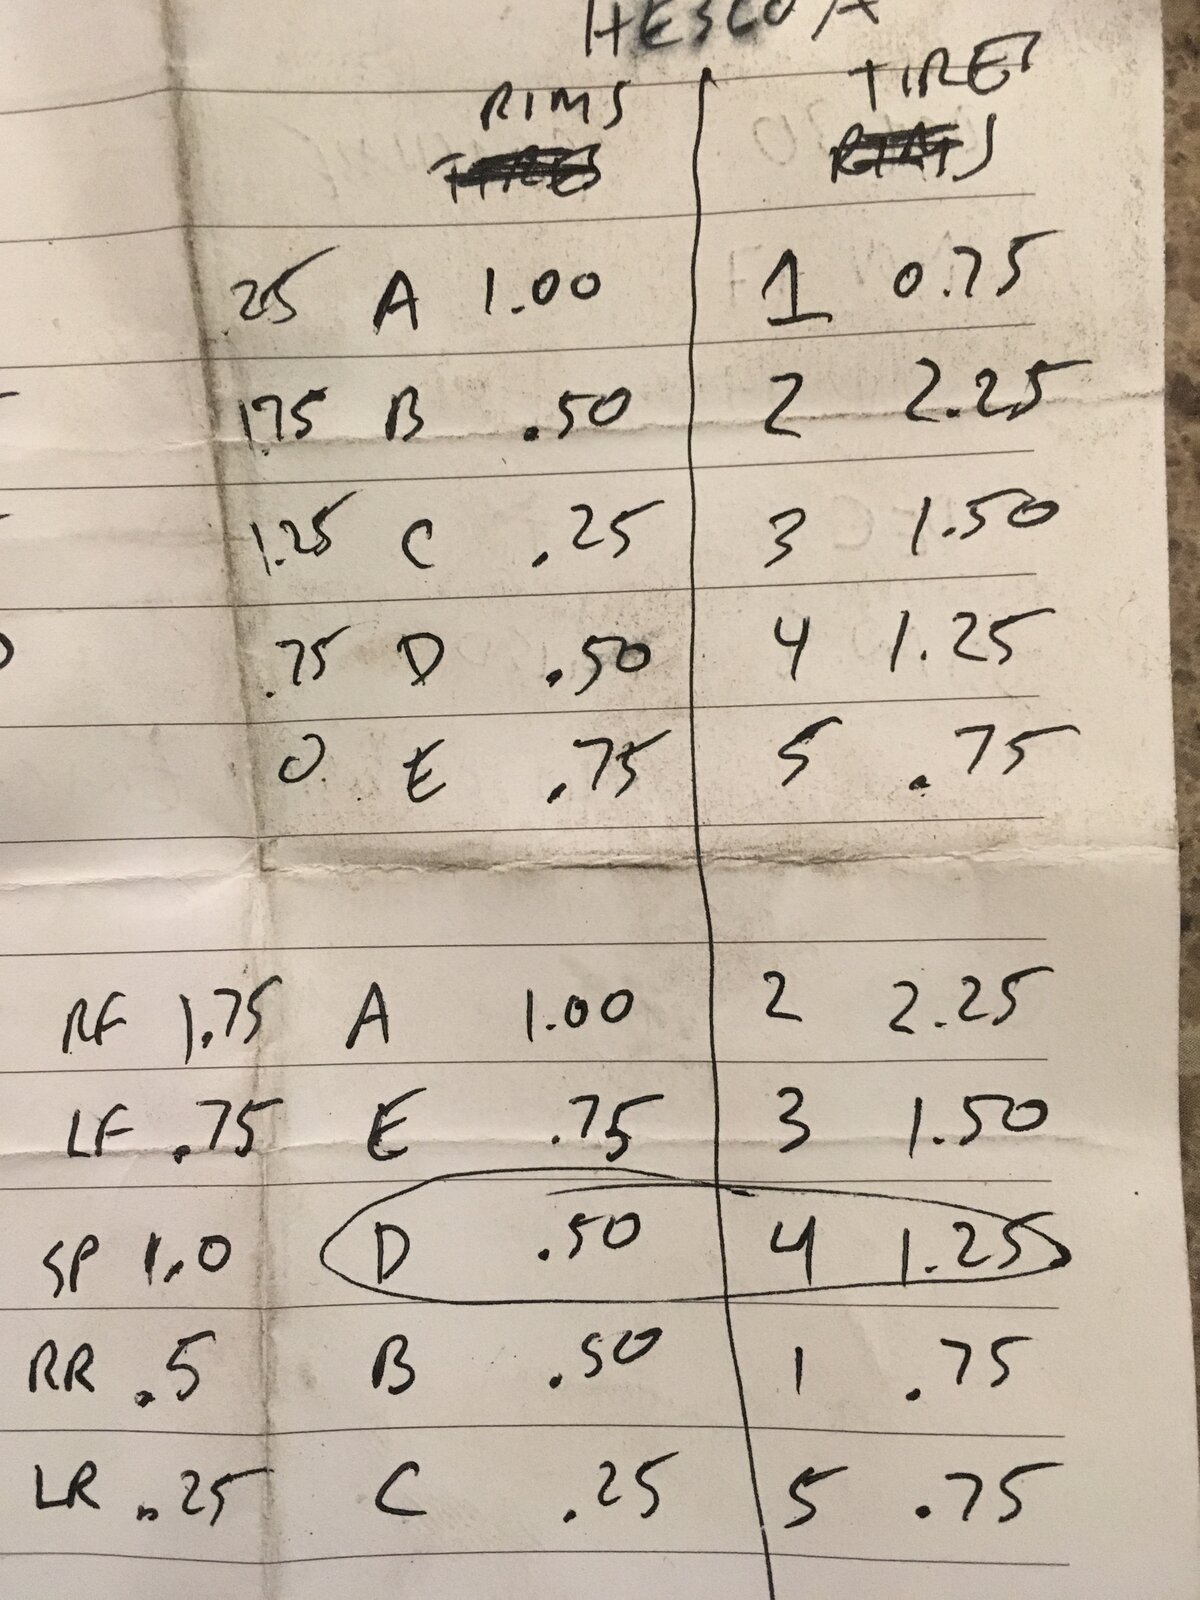 RIMS TIRES
TIRES RIMS
.25 A 1.00 1 0.75
1.75 B .50 2 2.25
1.25 C .25 3 1.50
.75 D .50 4 1.25
0 E .75 5 .75
RF 1.75 A 1.00 2 2.25
LF .75 E .75 3 1.50
SP 1.0 D .50 4 1.25
RR .5 B .50 1 .75
LR .25 C .25 5 .75